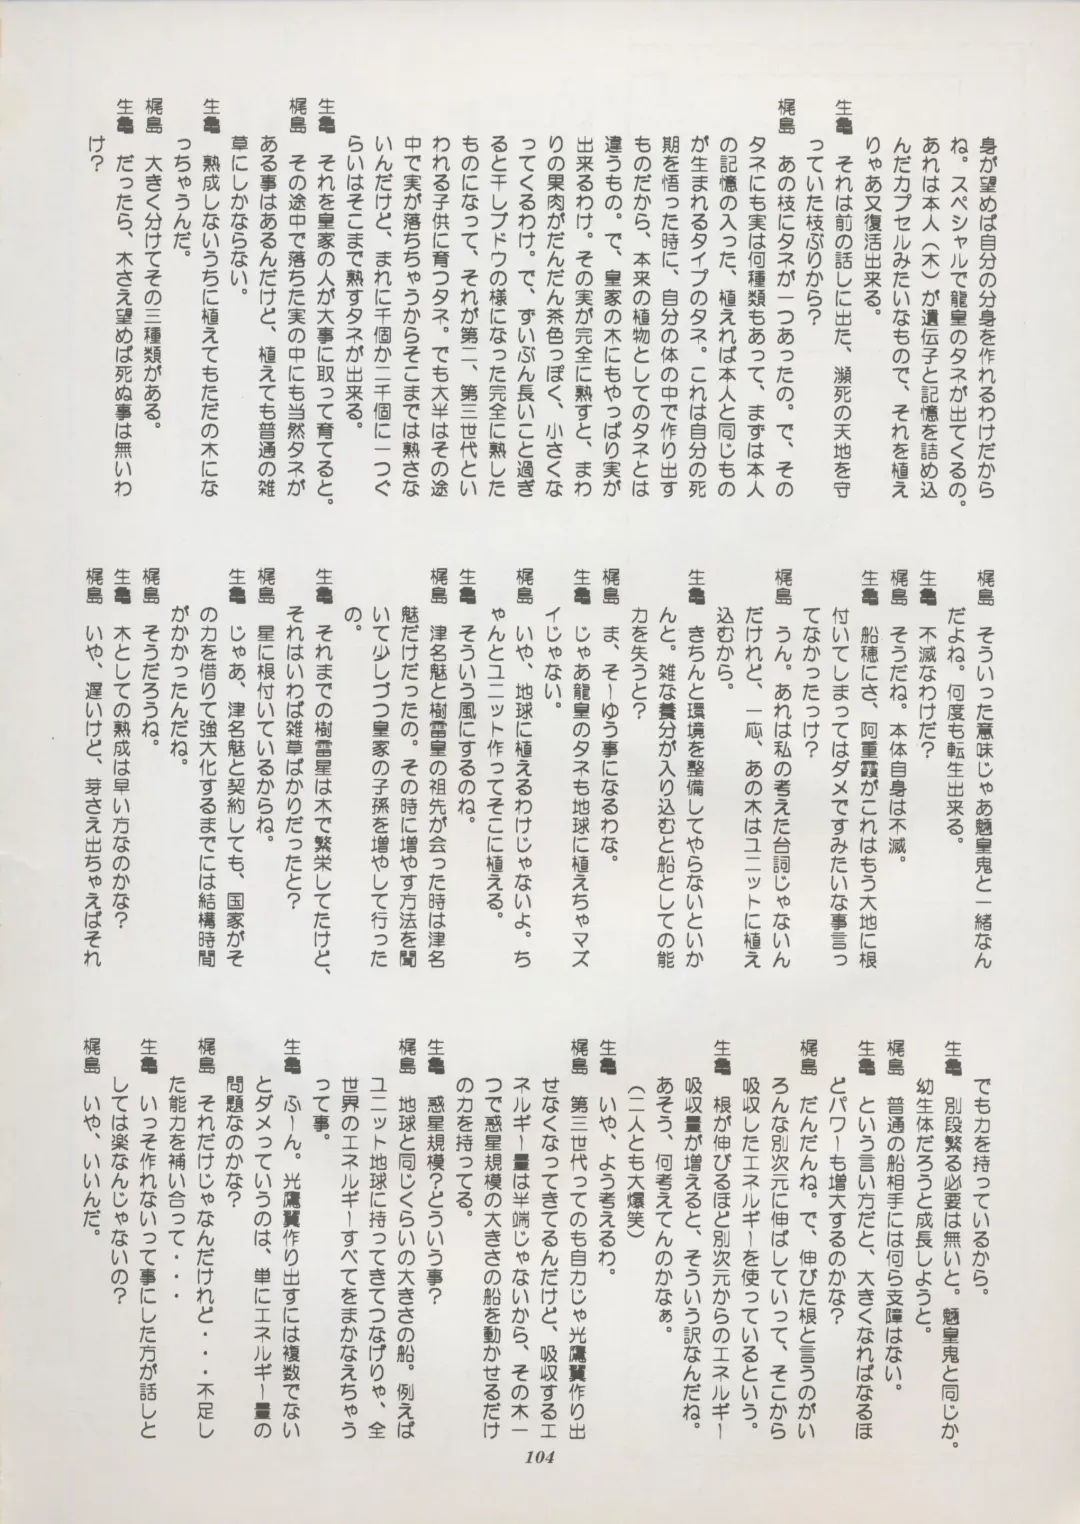 身が望めば自分の分身を作れるわけだから
ね。スペシャルで龍皇のタネが出てくるの。
あれは本人（木）が遺伝子と記憶を詰め込
んだカプセルみたいなもので、それを植え
りゃあ又復活出来る。
生亀　それは前の話しに出た、瀕死の天地を守
っていた枝ぶりから？
梶島　あの枝にタネが一つあったの。で、その
タネにも実は何種類もあって、まずは本人
の記憶の入った、植えれば本人と同じもの
が生まれるタイプのタネ。これは自分の死
期を悟った時に、自分の体の中で作り出す
ものだから、本来の植物としてのタネとは
違うもの。で、皇家の木にもやっぱり実が
出来るわけ。その実が完全に熟すと、まわ
りの果肉がだんだん茶色っぽく、小さくな
ってくるわけ。で、ずいぶん長いこと過ぎ
ると干しブドウの様になった完全に熟した
ものになって、それが第二、第三世代とい
われる子供に育つタネ。でも大半はその途
中で実が落ちちゃうからそこまでは熟さな
いんだけど、まれに千個か二千個に一つぐ
らいはそこまで熟すタネが出来る。
生亀　それを皇家の人が大事に取って育てると。
梶島　その途中で落ちた実の中にも当然タネが
ある事はあるんだけど、植えても普通の雑
草にしかならない。
生亀　熟成しないうちに植えてもただの木にな
っちゃうんだ。
梶島　大きく分けてその三種類がある。
生亀　だったら、木さえ望めば死ぬ事は無いわ
け？
梶島　そういった意味じゃあ魎皇鬼と一緒なん
だよね。何度も転生出来る。
生亀　不滅なわけだ？
梶島　そうだね。本体自身は不滅。
生亀　船穂にさ、阿重霞がこれはもう大地に根
付いてしまってはダメですみたいな事言っ
てなかったっけ？
梶島　うん。あれは私の考えた台詞じゃないん
だけれど、一応、あの木はユニットに植え
込むから。
生亀　きちんと環境を整備してやらないといか
んと。雑な養分が入り込むと船としての能
力を失うと？
梶島　ま、そーゆう事になるわな。
生亀　じゃあ龍皇のタネも地球に植えちゃマズ
イじゃない。
梶島　いや、地球に植えるわけじゃないよ。ち
ゃんとユニット作ってそこに植える。
生亀　そういう風にするのね。
梶島　津名魅と樹雷皇の祖先が会った時は津名
魅だけだったの。その時に増やす方法を聞
いて少しづつ皇家の子孫を増やして行った
の。
生亀　それまでの樹雷星は木で繁栄してたけど、
それはいわば雑草ばかりだったと？
梶島　星に根付いているからね。
生亀　じゃあ、津名魅と契約しても、国家がそ
の力を借りて強大化するまでには結構時間
がかかったんだね。
梶島　そうだろうね。
生亀　木としての熟成は早い方なのかな？
梶島　いや、遅いけど、芽さえ出ちゃえばそれ
でも力を持っているから。
生亀　別段繁る必要は無いと。魎皇鬼と同じか。
幼生体だろうと成長しようと。
梶島　普通の船相手には何ら支障はない。
生亀　という言い方だと、大きくなればなるほ
どパワーも増大するのかな？
梶島　だんだんね。で、伸びた根と言うのがい
ろんな別次元に伸ばしていって、そこから
吸収したエネルギーを使っているという。
生亀　根が伸びるほど別次元からのエネルギー
吸収量が増えると、そういう訳なんだね。
あそう、何考えてんのかなぁ。
（二人とも大爆笑）
生亀　いや、よう考えるわ。
梶島　第三世代ってのも自力じゃ光鷹翼作り出
せなくなってきてるんだけど、吸収するエ
ネルギー量は半端じゃないから、その木一
つで惑星規模の大きさの船を動かせるだけ
の力を持ってる。
生亀　惑星規模？どういう事？
梶島　地球と同じくらいの大きさの船。例えば
ユニット地球に持ってきてつなげりゃ、全
世界のエネルギーすべてをまかなえちゃう
って事。
生亀　ふーん。光鷹翼作り出すには複数でない
とダメっていうのは、単にエネルギー量の
問題なのかな？
梶島　それだけじゃなんだけれど・・・不足し
た能力を補い合って・・・
生亀　いっそ作れないって事にした方が話しと
しては楽なんじゃないの？
梶島　いや、いいんだ。
104